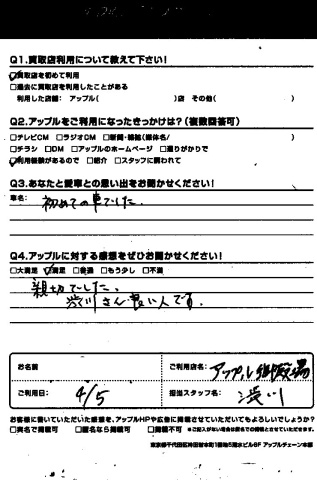 Q1.買取店利用について教えて下さい!
☑買取店を初めて利用
□過去に買取店を利用したことがある
利用した店舗: アップル( )店 その他( )
Q2.アップルをご利用になったきっかけは?(複数回答可)
□テレビCM □ラジオCM □新聞・雑誌(媒体名/ )
□チラシ □DM □アップルのホームページ □通りがかりで
☑利用経験があるので □紹介 □スタッフに誘われて
Q3.あなたと愛車との思い出をお聞かせください!
車名: 初めての車でした.
Q4.アップルに対する感想をぜひお聞かせください!
□大満足 ☑満足 □普通 □もう少し □不満
親切でした、
渋川さん良い人です.
お名前
ご利用店名: アップル御殿場
ご利用日: 4/5
担当スタッフ名: 渋川
お客様に書いていただいた感想を、アップルHPや広告に掲載させていただいてもよろしいでしょうか?
□実名で掲載可 □匿名なら掲載可 □掲載不可 ※ご記入がない場合は匿名での掲載とさせていただきます。